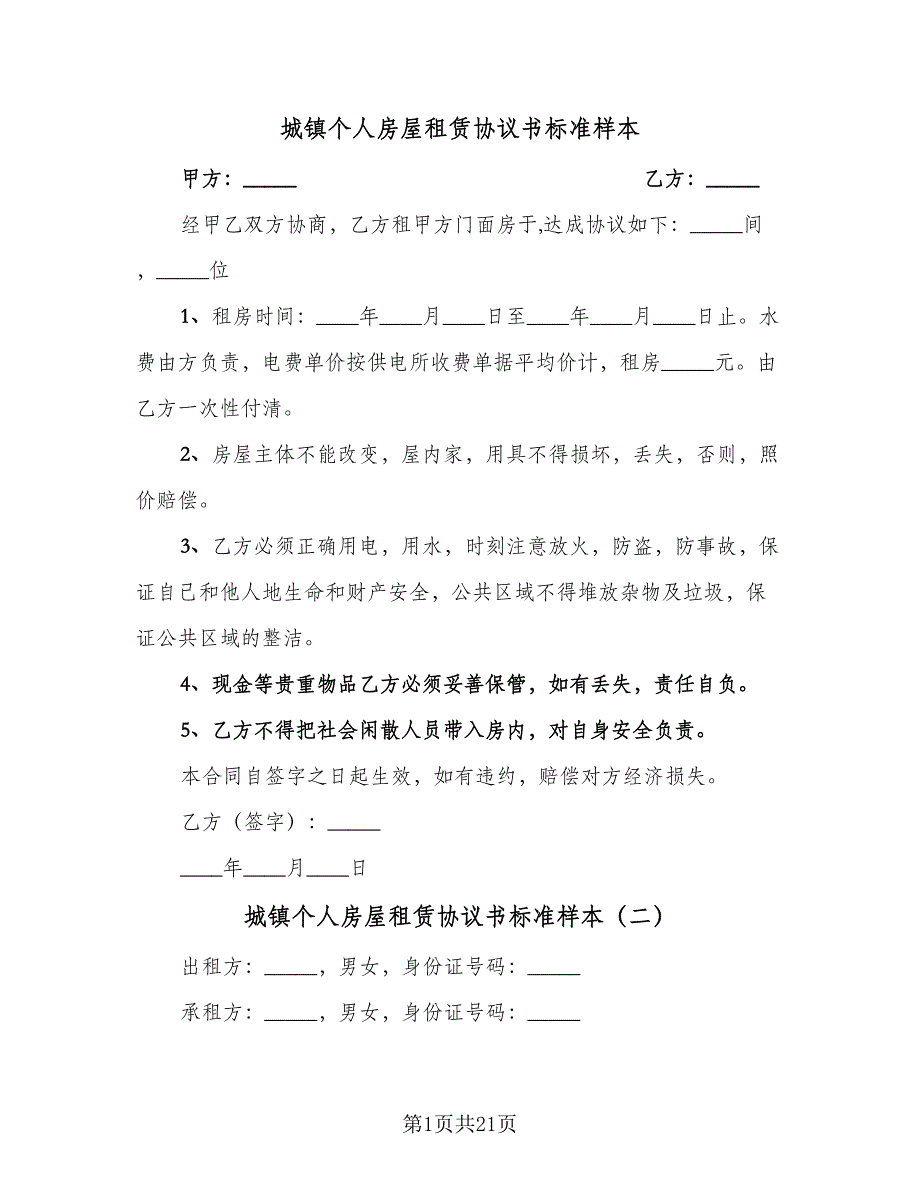 城镇个人房屋租赁协议书标准样本
甲方：_____ 乙方：_____
经甲乙双方协商，乙方租甲方门面房于,达成协议如下：_____间
，_____位
1、租房时间：____年____月____日至____年____月____日止。水
费由方负责，电费单价按供电所收费单据平均价计，租房_____元。由
乙方一次性付清。
2、房屋主体不能改变，屋内家，用具不得损坏，丢失，否则，照
价赔偿。
3、乙方必须正确用电，用水，时刻注意放火，防盗，防事故，保
证自己和他人地生命和财产安全，公共区域不得堆放杂物及垃圾，保
证公共区域的整洁。
4、现金等贵重物品乙方必须妥善保管，如有丢失，责任自负。
5、乙方不得把社会闲散人员带入房内，对自身安全负责。
本合同自签字之日起生效，如有违约，赔偿对方经济损失。
乙方（签字）：_____
____年____月____日
城镇个人房屋租赁协议书标准样本（二）
出租方：_____，男女，身份证号码：_____
承租方：_____，男女，身份证号码：_____
第1页共21页